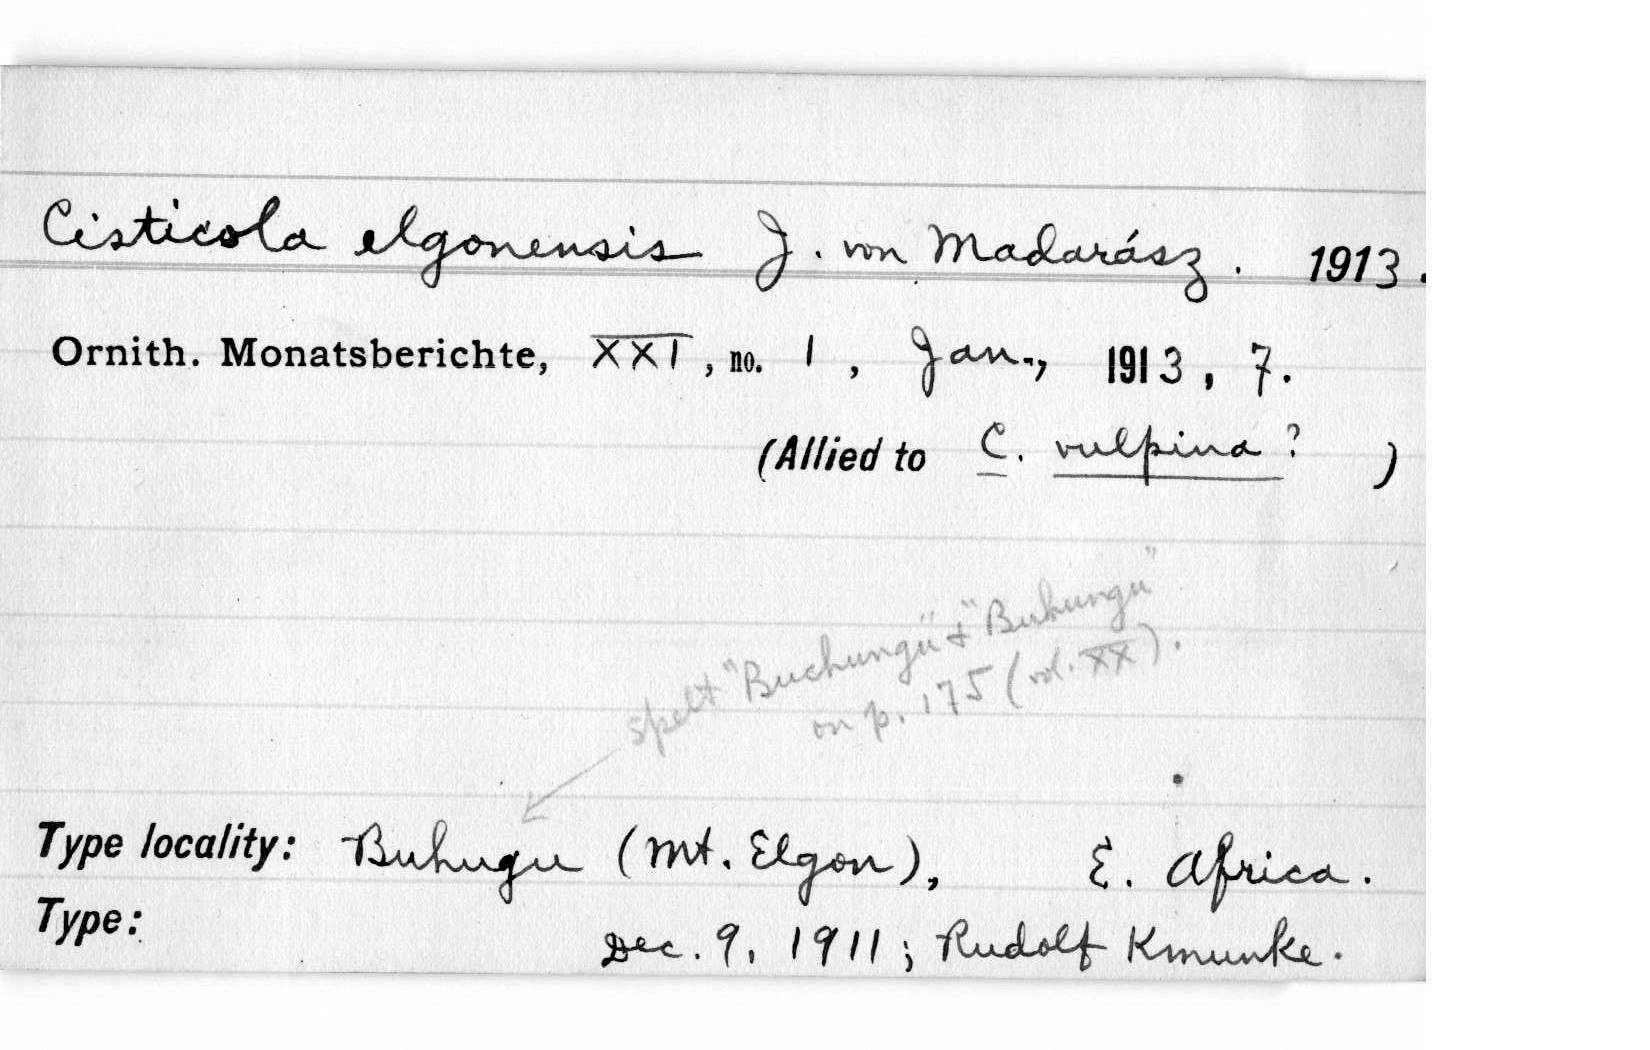 Cisticola elgonensis J. von Madarász. 1913.
Ornith. Monatsberichte, XXI, no. 1, Jan., 1913, 7.
(Allied to C. vulpina? )
spelt "Buchungu" & "Buhungu"
on p. 175 (vol. XX).
Type locality: Buhugu (Mt. Elgon), E. Africa.
Type:
Dec. 9, 1911; Rudolf Kmunke.